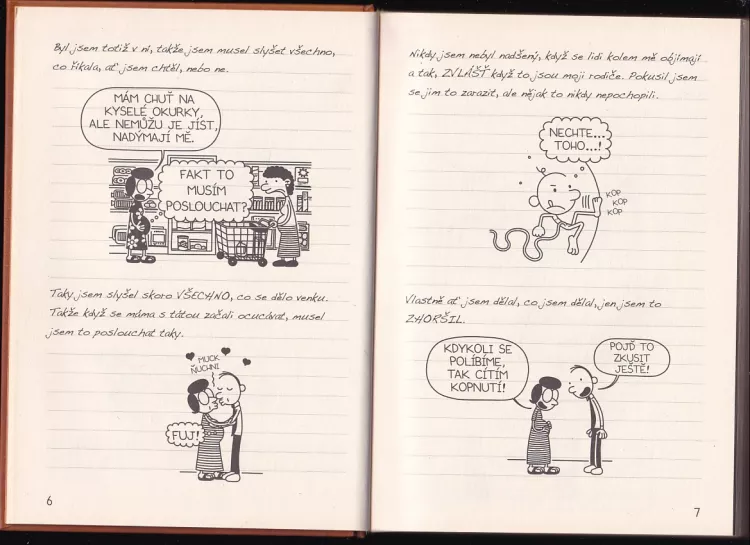 Byl jsem totiž v ní, takže jsem musel slyšet všechno,
co říkala, ať jsem chtěl, nebo ne.
MÁM CHUŤ NA
KYSELÉ OKURKY,
ALE NEMŮŽU JE JÍST,
NADÝMAJÍ MĚ.
FAKT TO
MUSÍM
POSLOUCHAT?
Taky jsem slyšel skoro VŠECHNO, co se dělo venku.
Takže když se máma s tátou začali ocucávat, musel
jsem to poslouchat taky.
MUCK
ŇUCHNI
FUJ!
6
Nikdy jsem nebyl nadšený, když se lidi kolem mě objímají
a tak, ZVLÁŠŤ když to jsou moji rodiče. Pokusil jsem
se jim to zarazit, ale nějak to nikdy nepochopili.
NECHTE...
TOHO...!
KOP
KOP
KOP
Vlastně ať jsem dělal, co jsem dělal, jen jsem to
ZHORŠIL.
KDYKOLI SE
POLÍBÍME,
TAK CÍTÍM
KOPNUTÍ!
POJĎ TO
ZKUSIT
JEŠTĚ!
7